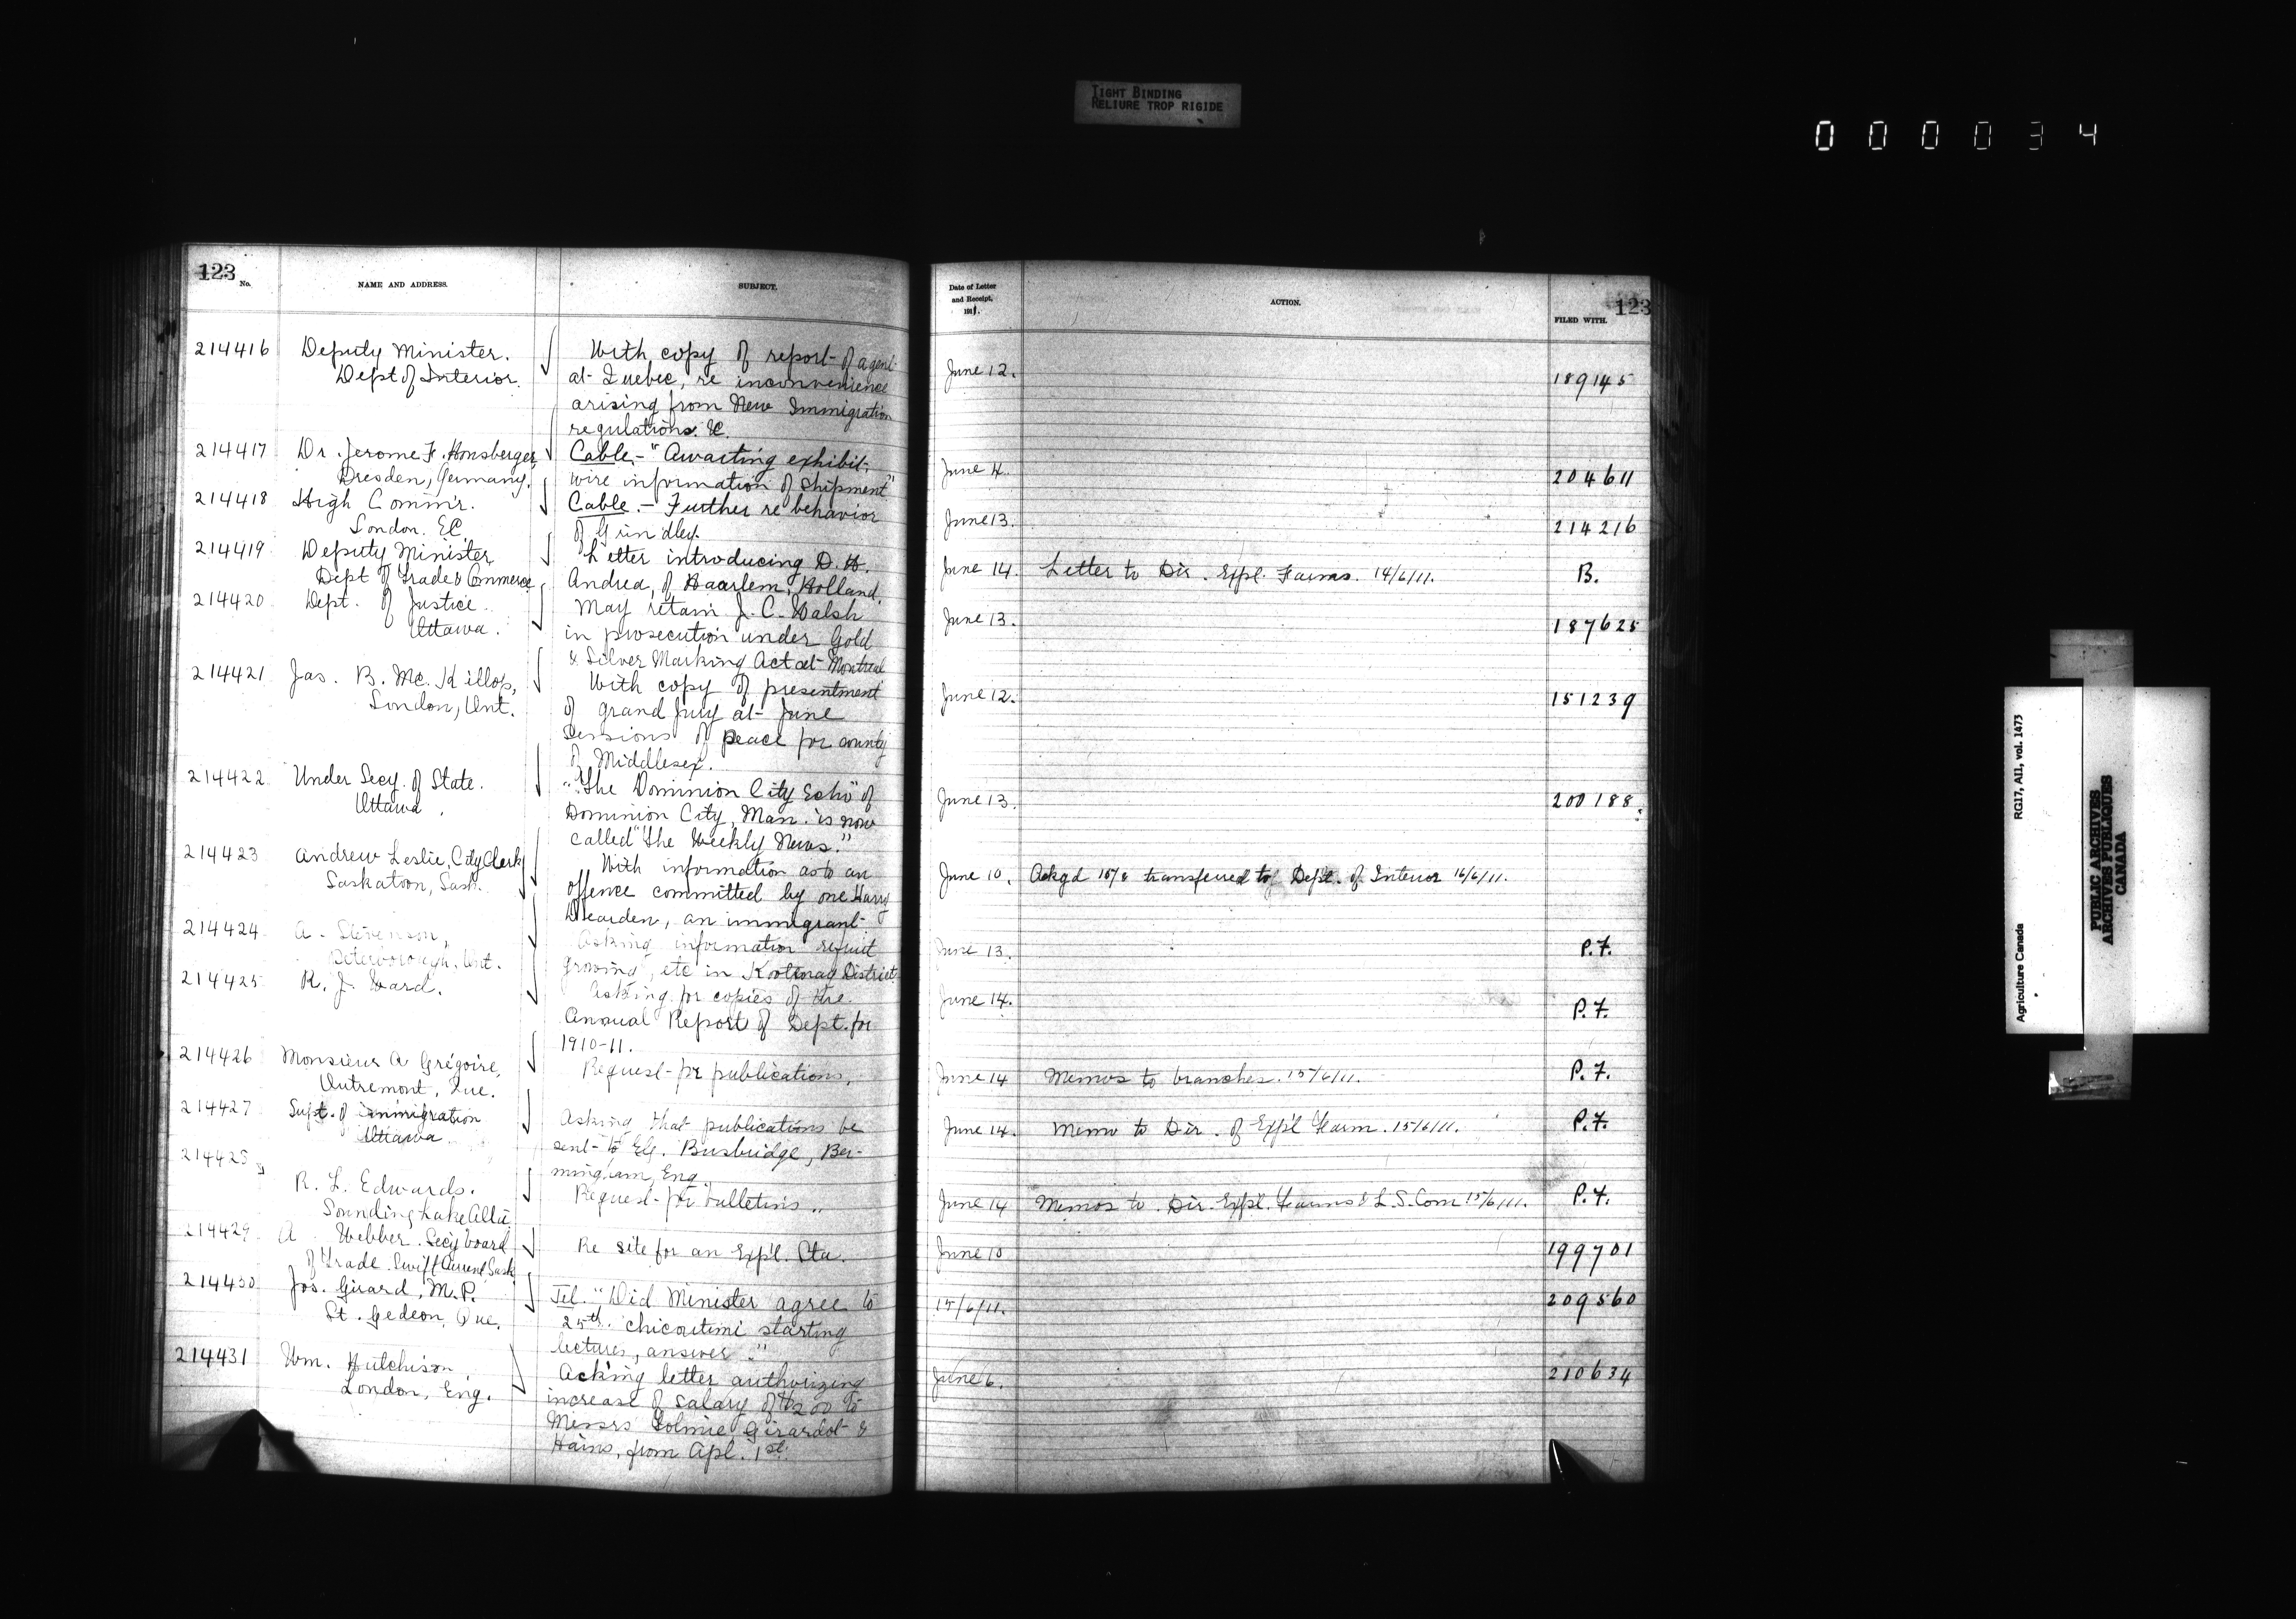 TIGHT BINDING
RELIURE TROP RIGIDE
000034
123
No.
NAME AND ADDRESS.
SUBJECT.
214416
Deputy Minister.
Dept of Interior.
With copy of report of agent
at Quebec, re inconvenience
arising from New Immigration
regulations. &c.
214417
Dr. Jerome F. Honsberger
Dresden, Germany.
Cable - "Awaiting exhibit,
wire information of shipment"
214418
High Commr.
London. EC
Cable. - Further re behavior
of Grindley.
214419
Deputy Minister
Dept of Trade & Commerce
Letter introducing D. H.
Andrea, of Haarlem, Holland.
214420
Dept. of Justice.
Ottawa.
May retain J. C. Walsh
in prosecution under Gold
& Silver Marking Act at Montreal
214421
Jas. B. McKillop,
London, Ont.
With copy of presentment
of grand jury at June
Sessions of peace for county
of Middlesex.
214422
Under Secy. of State.
Ottawa.
"The Dominion City Echo" of
Dominion City, Man. is now
called "The Weekly News."
214423
Andrew Leslie, City Clerk
Saskatoon, Sask.
With information as to an
offence committed by one Harry
Dearden, an immigrant
214424
A. Stevenson,
Peterborough, Ont.
Asking information re fruit
growing, etc in Kootenay District.
214425
R. J. Ward.
Asking for copies of the
Annual Report of Dept. for
1910-11.
214426
Monsieur A Grégoire,
Outremont, Que.
Request for publications.
214427
Supt. of immigration
Ottawa
Asking that publications be
sent to Busbridge, Ber-
mingham, Eng.
214428
R. L. Edwards.
Sounding Lake Alta
Request for bulletins
214429
A Webber. Secy board
of Trade. Swift Current Sask
Re site for an Exp'l. Sta.
214430
Jos. Girard, M.P.
St. Gedeon, Que.
Tel. "Did Minister agree to
25th. Chicoutimi starting
lectures, answer."
214431
Wm. Hutchison
London, Eng.
Acking letter authorizing
increase of salary of $200 to
Messrs Tolmie, Girardot &
Hains, from Apl. 1st.
Date of Letter
and Receipt,
1911.
ACTION.
FILED WITH.
123
June 12.
189145
June 4.
204611
June 13.
214216
June 14.
Letter to Dir. Expl. Farms. 14/6/11.
B.
June 13.
187625
June 12.
151239
June 13.
200188
June 10.
Ackgd 15/6 transferred to Dept. of Interior 16/6/11.
June 13.
P.F.
June 14.
P.F.
June 14
Memos to branches. 15/6/11.
P.F.
June 14.
Memo to Dir. of Exp'l Farm. 15/6/11.
P.F.
June 14
Memos to Dir. Expl. Farms & L. S. Com 15/6/11.
P.F.
June 10
199701
15/6/11.
209560
June 6.
210634
RG17, AII, vol. 1473
Agriculture Canada
PUBLIC ARCHIVES
ARCHIVES PUBLIQUES
CANADA